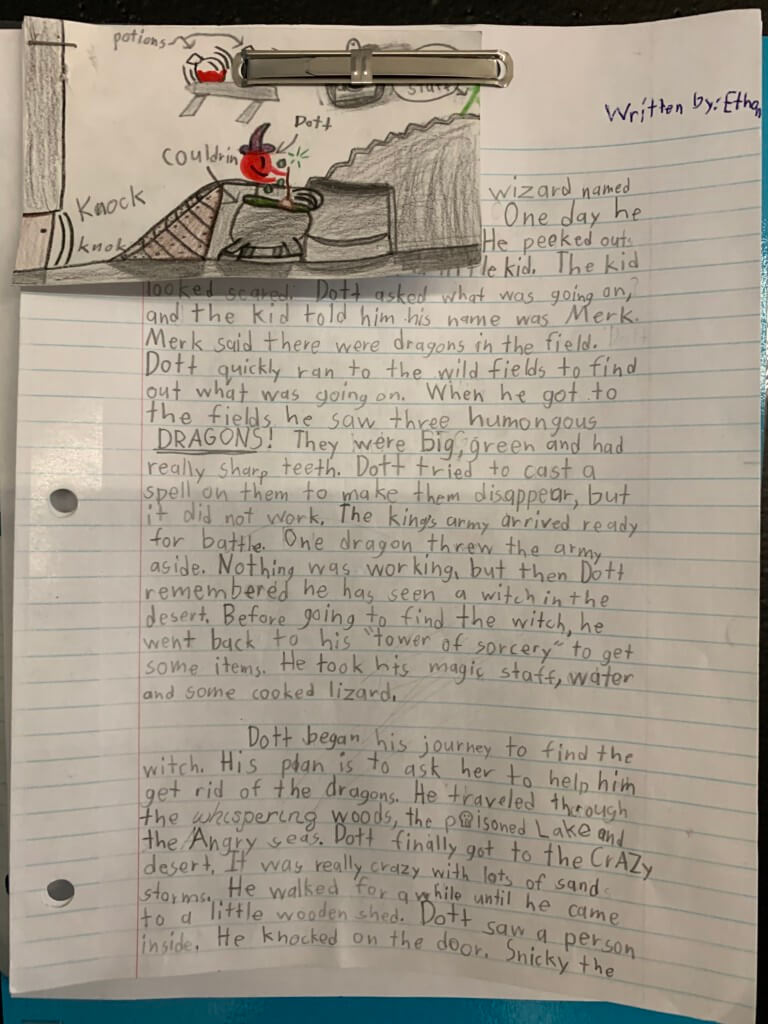 potions
Written by: Ethan
Dott
Couldrin
Knock
knok
wizard named
One day he
He peeked out
little kid. The kid
looked scared. Dott asked what was going on,
and the kid told him his name was Merk.
Merk said there were dragons in the field.
Dott quickly ran to the wild fields to find
out what was going on. When he got to
the fields he saw three humongous
DRAGONS! They were big, green and had
really sharp teeth. Dott tried to cast a
spell on them to make them disappear, but
it did not work. The king's army arrived ready
for battle. One dragon threw the army
aside. Nothing was working, but then Dott
remembered he has seen a witch in the
desert. Before going to find the witch, he
went back to his "tower of sorcery" to get
some items. He took his magic staff, water
and some cooked lizard.
Dott began his journey to find the
witch. His plan is to ask her to help him
get rid of the dragons. He traveled through
the whispering woods, the poisoned Lake and
the Angry seas. Dott finally got to the CrAZy
desert. It was really crazy with lots of sand
storms. He walked for a while until he came
to a little wooden shed. Dott saw a person
inside. He knocked on the door. Snicky the